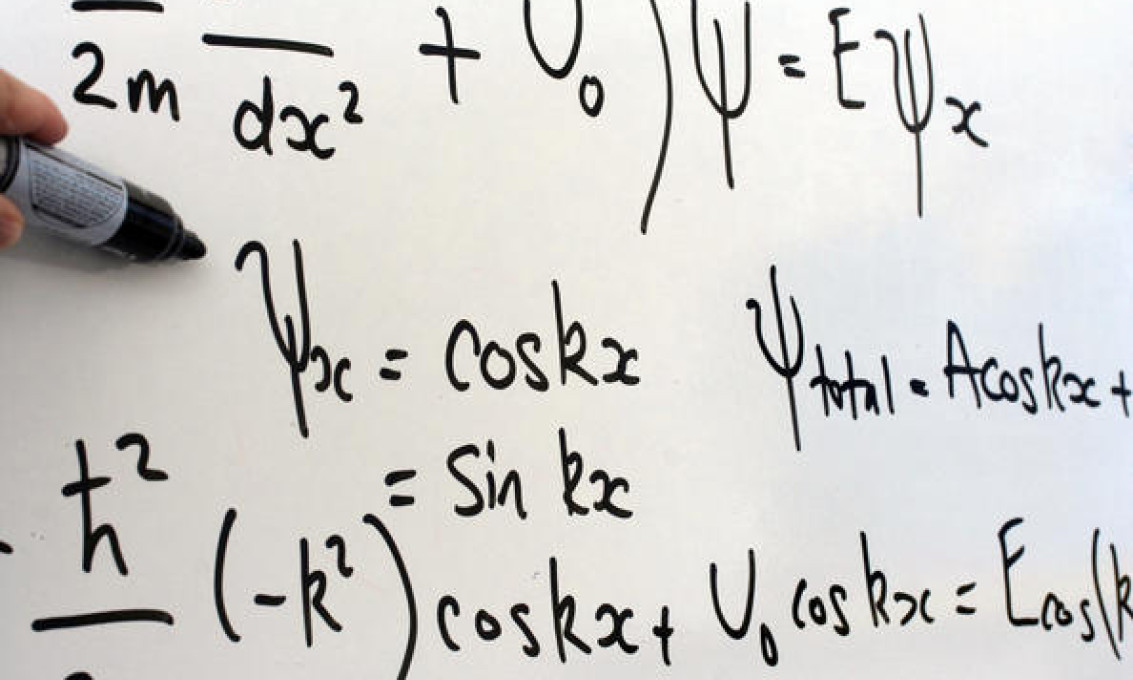 2m dx² + U₀ ) ψ = Eψx
ψx = coskx ψtotal = Acoskx +
= Sin kx
- ħ² (-k²) coskx + U₀ coskx = Ecos(k